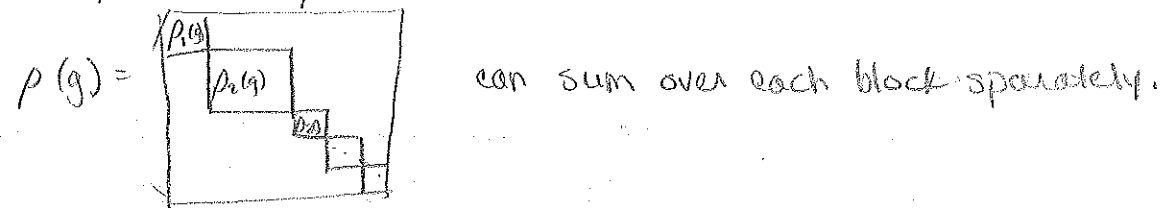 ρ₁(g)
ρ(g) = ρ₂(g) can sum over each block sparately.